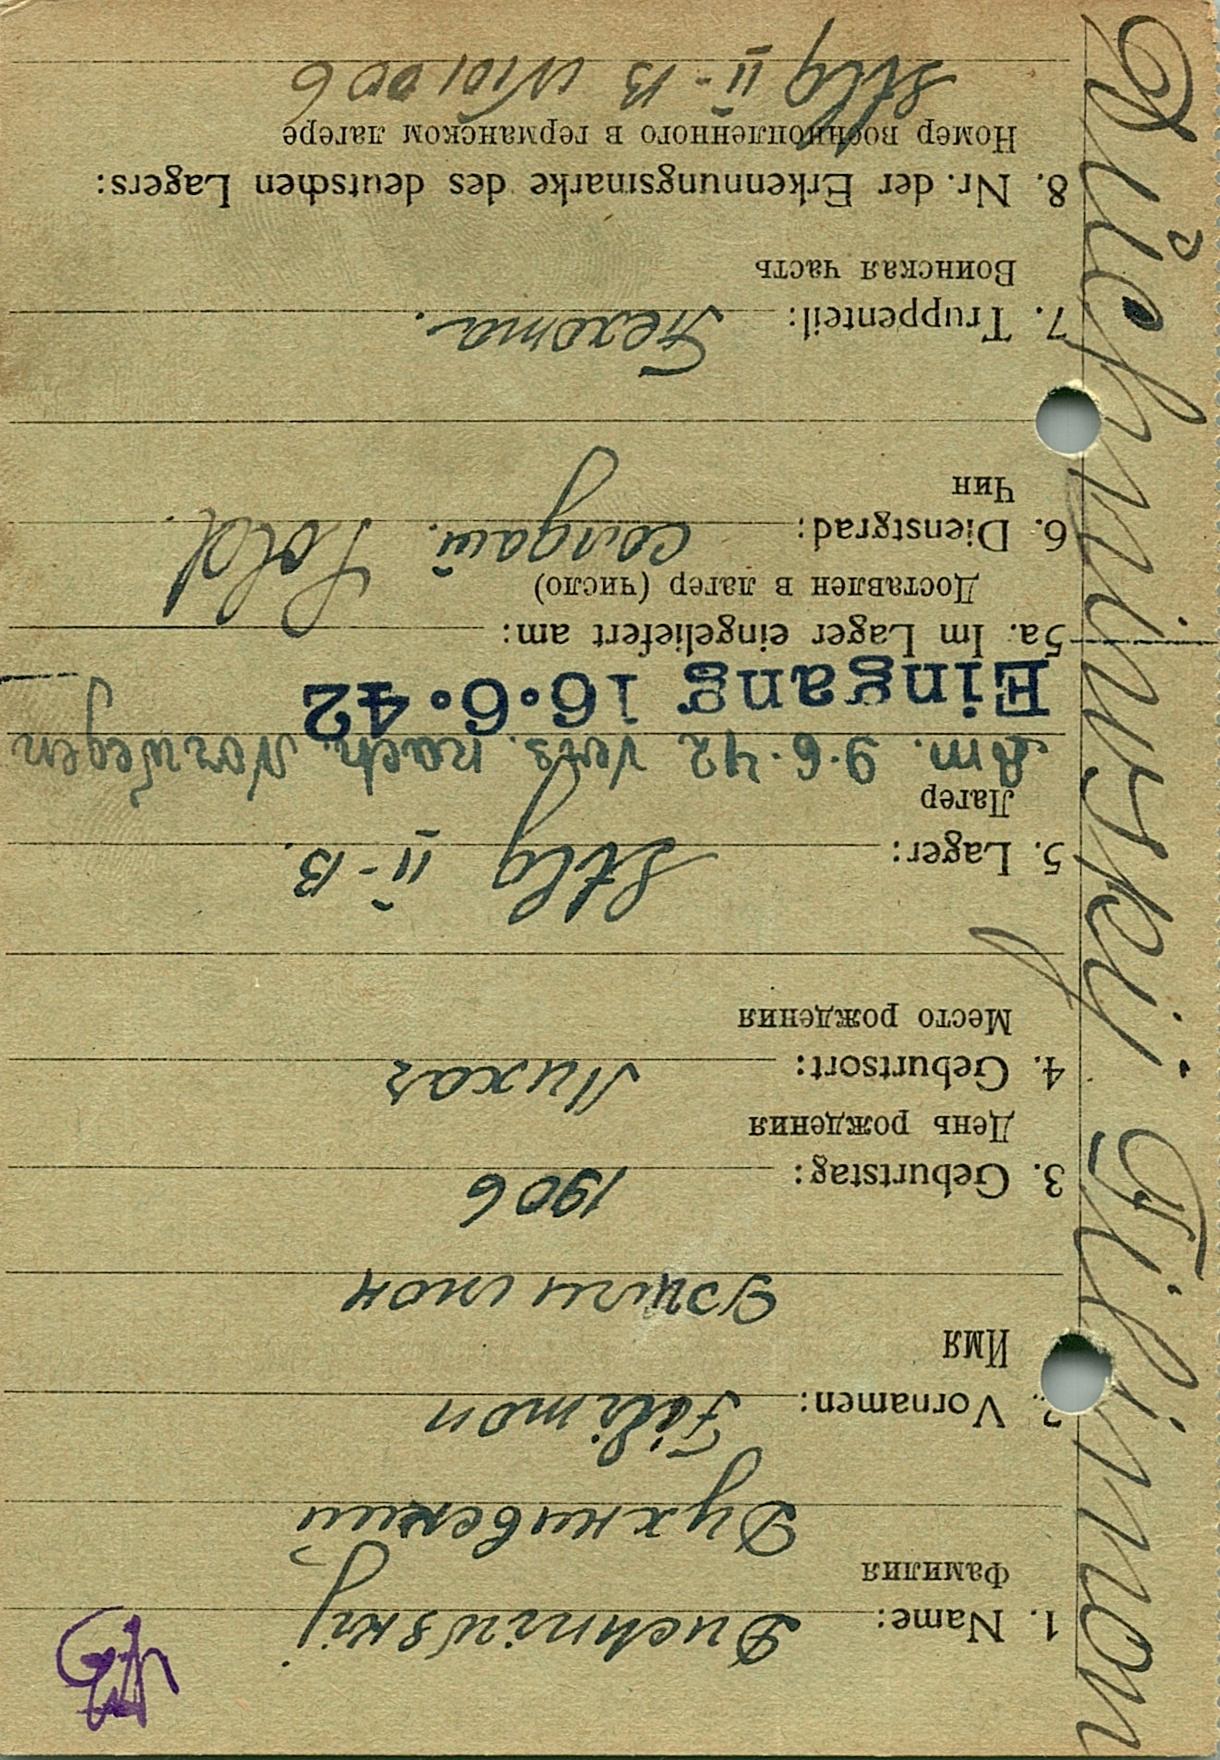 Duchniwskij Filimon
1. Name: Duchniwskij
Фамилия
Духнивский
2. Vornamen: Filimon
Имя
Филимон
3. Geburtstag: 1906
День рождения
4. Geburtsort:
Место рождения
5. Lager: Stlg II-B.
Лагер
Am. 9.6.42 vers. nach. Norwegen
Eingang 16.6.42
5a. Im Lager eingeliefert am:
Доставлен в лагер (число)
6. Dienstgrad: солдат. Sold.
Чин
7. Truppenteil: Пехота.
Воинская часть
8. Nr. der Erkennungsmarke des deutschen Lagers:
Номер военнопленного в германском лагере
Stlg II-B N 101006